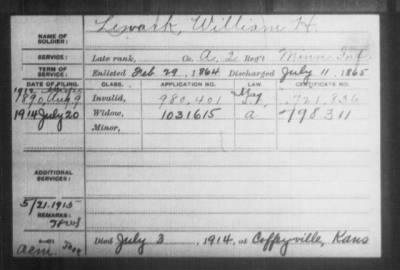 NAME OF SOLDIER: Lewark, William H.
SERVICE: Late rank, Co. A, 2 Reg't Minn Inf.
TERM OF SERVICE: Enlisted Feb 29, 1864 Discharged July 11, 1865
DATE OF FILING. CLASS. APPLICATION NO. LAW. CERTIFICATE NO.
1890, Aug 9 Invalid, 980,401 721,836
1914 July 20 Widow, 1031615 a 798311
Minor,
ADDITIONAL SERVICES:
5/21.1915
REMARKS:
Died July 3, 1914, at Coffeyville, Kans